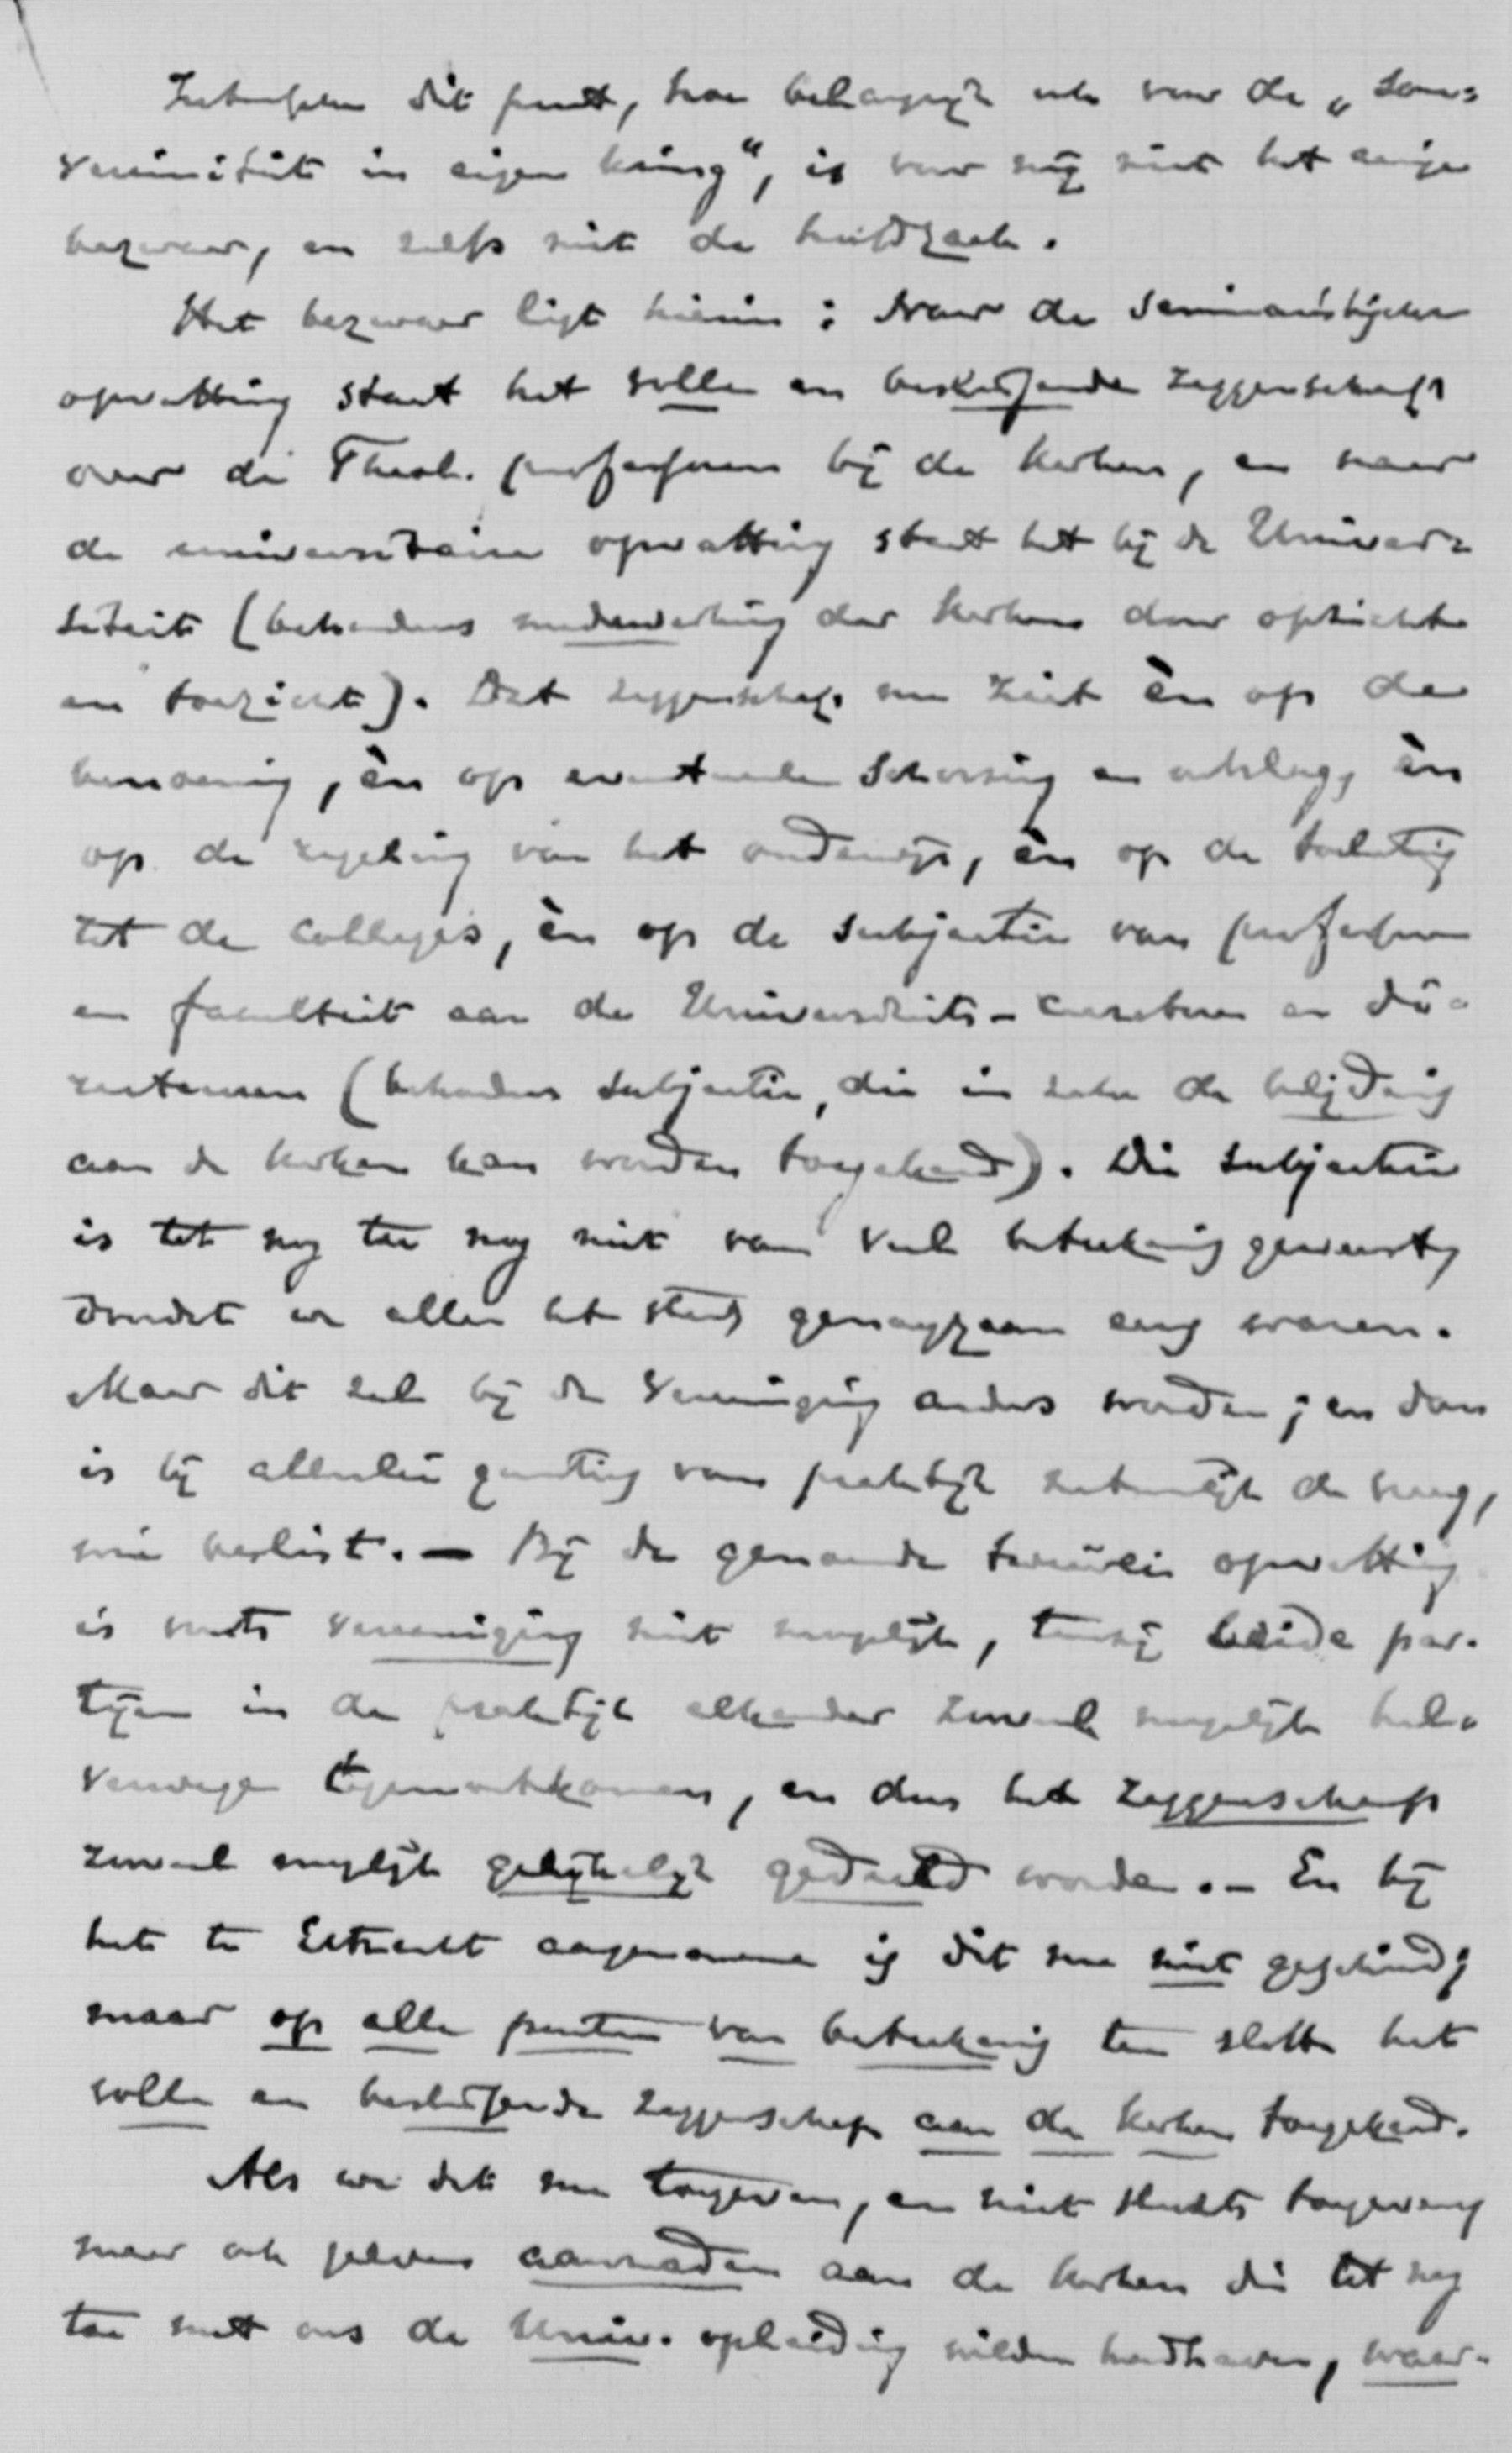 Intusschen dit punt, hoe belangrijk ook voor de „Sou=
vereiniteit in eigen kring", is voor mij niet het eenige
bezwaar, en zelfs niet de hoofdzaak.
Het bezwaar ligt hierin: Naar de Seminaristische
opvatting staat het volle en beslissende zeggenschap
over de Theol. professoren bij de Kerken, en naar
de universitaire opvatting staat het bij de Univer=
siteit (behoudens medewerking der Kerken door
en toezicht). Dat zeggenschap nu ziet èn op de
benoeming, èn op eventueele schorsing en ontslag, èn
op de regeling van het onderwijs, èn op de toelating
tot de colleges, èn op de subjectie van professoren
en faculteit aan de Universiteits-curatoren en di=
recteuren (behoudens subjectie, die in zake de belijdenis
aan de kerken kan worden toegekend). Die subjectie
is tot nog toe nog niet van veel beteekenis geweest,
omdat we allen het steeds genoegzaam eens waren.
Maar dit zal bij de Vereeniging anders worden; en dan
is bij allerlei quaesties van praktijk natuurlijk de vraag,
wie beslist. — Bij de genoemde tweeërlei opvatting
is reeds vereeniging niet mogelijk, tenzij beide par=
tijen in de praktijk elkander zooveel mogelijk hal=
verwege tegemoetkomen, en dus het zeggenschap
zooveel mogelijk gelijkelijk gedeeld worde. — En bij
het te Utrecht aangenomene is dit nu niet geschied;
maar op alle punten van beteekenis ten slotte het
volle en beslissende zeggenschap aan de Kerken toegekend.
Als we dat nu toegeven, en niet slechts toegeven,
maar ook gaan aanraden aan de kerken die tot nog
toe met ons de Univ. opleiding wilden handhaven, waar=